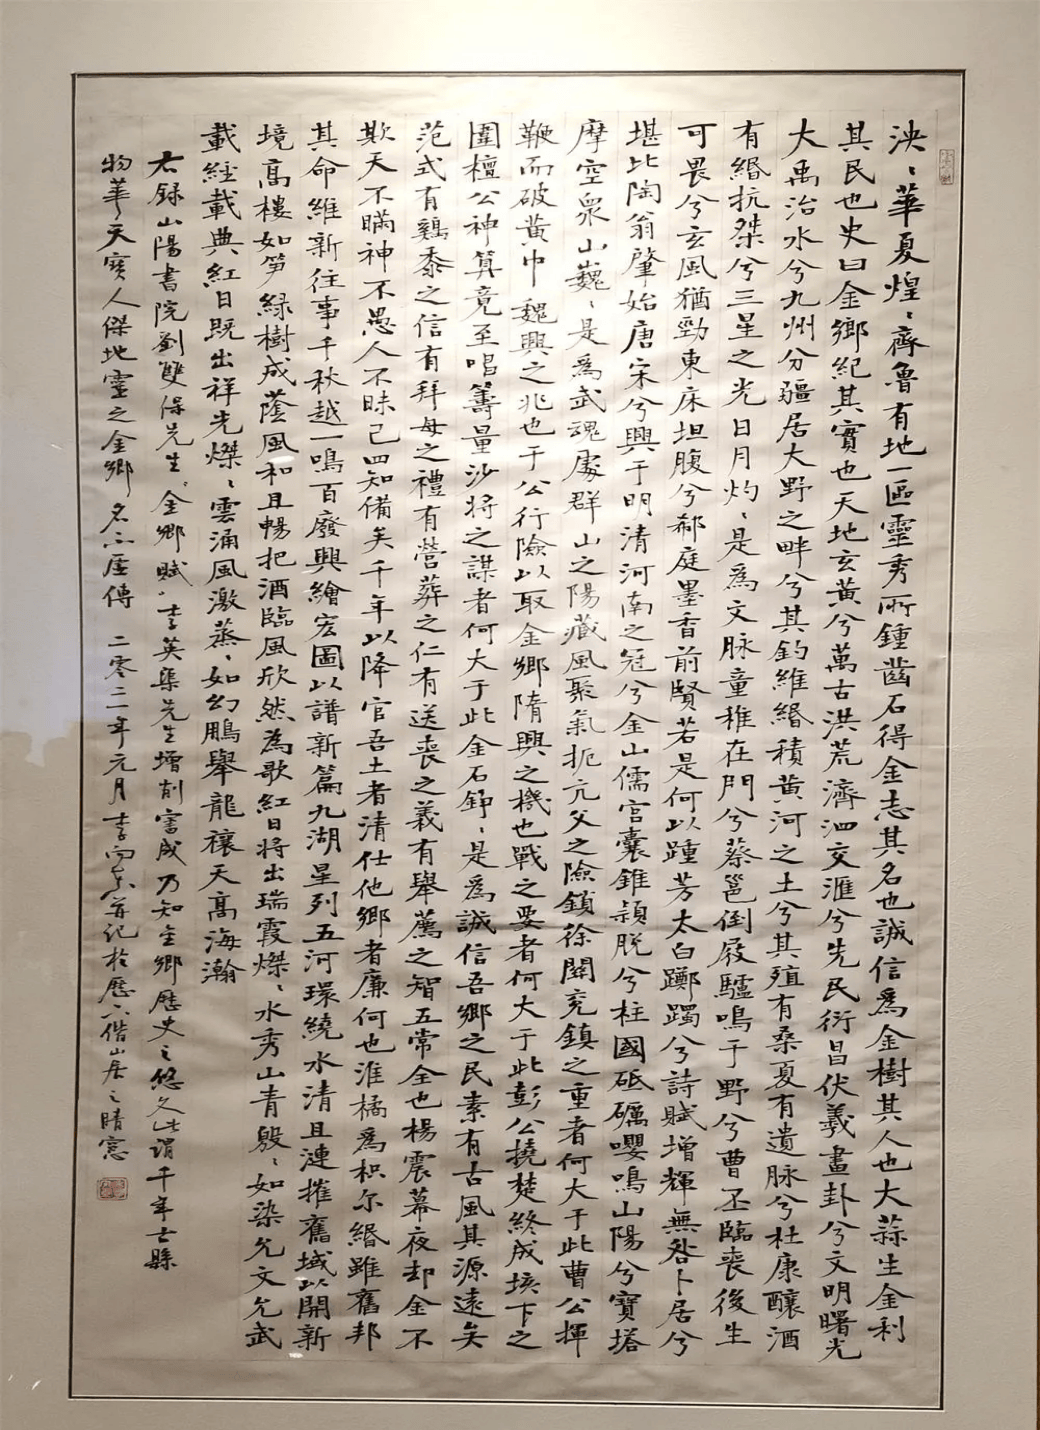 泱〻華夏煌〻齊魯有地一區靈秀所鍾齒石得金志其名也誠信為金樹其人也大蒜生金利
其民也史曰金鄉紀其實也天地玄黃兮萬古洪荒濟泗交滙兮先民衍昌伏羲畫卦兮文明曙光
大禹治水兮九州分疆居大野之畔兮其鈞維緡積黃河之土兮其殖有桑夏有遺脉兮杜康釀酒
有緡抗桀兮三星之光日月灼〻是為文脉童稚在門兮蔡邕倒屐驢鳴于野兮曹丕臨喪後生
可畏兮玄風猶勁東床坦腹兮郗庭墨香前賢若是何以踵芳太白躑躅兮詩賦增輝無咎卜居兮
堪比陶翁肇始唐宋兮興于明清河南之冠兮金山儒宮囊錐穎脫兮柱國砥礪嚶鳴山陽兮寶塔
摩空衆山巍〻是為武魂處群山之陽藏風聚氣扼亢父之險鎖徐關兗鎮之重者何大于此曹公揮
鞭而破黃巾魏興之兆也于公行險以取金鄉隋興之機也戰之要者何大于此彭公撓楚終成垓下之
圍檀公神算竟至唱籌量沙將之謀者何大于此金石錚〻是為誠信吾鄉之民素有古風其源遠矣
范式有鷄黍之信有拜母之禮有營葬之仁有送喪之義有舉薦之智五常全也楊震幕夜却金不
欺天不瞞神不愚人不昧己四知備矣千年以降官吾土者清仕他鄉者廉何也淮橘為枳尔緡雖舊邦
其命維新往事千秋越一鳴百廢興繪宏圖以譜新篇九湖星列五河環繞水清且漣摧舊域以開新
境高樓如笋綠樹成蔭風和且暢把酒臨風欣然為歌紅日將出瑞霞燦〻水秀山青殷〻如染允文允武
載經載典紅日既出祥光燦〻雲涌風激蒸〻如幻鵬舉龍禳天高海瀚
右錄山陽書院劉雙保先生金鄉賦李英集先生增削審成乃知金鄉歷史之悠久生謂千年古縣
物華天寶人傑地靈之金鄉名不虛傳 二零二二年元月李向東并記於歷下偕山居之晴窓